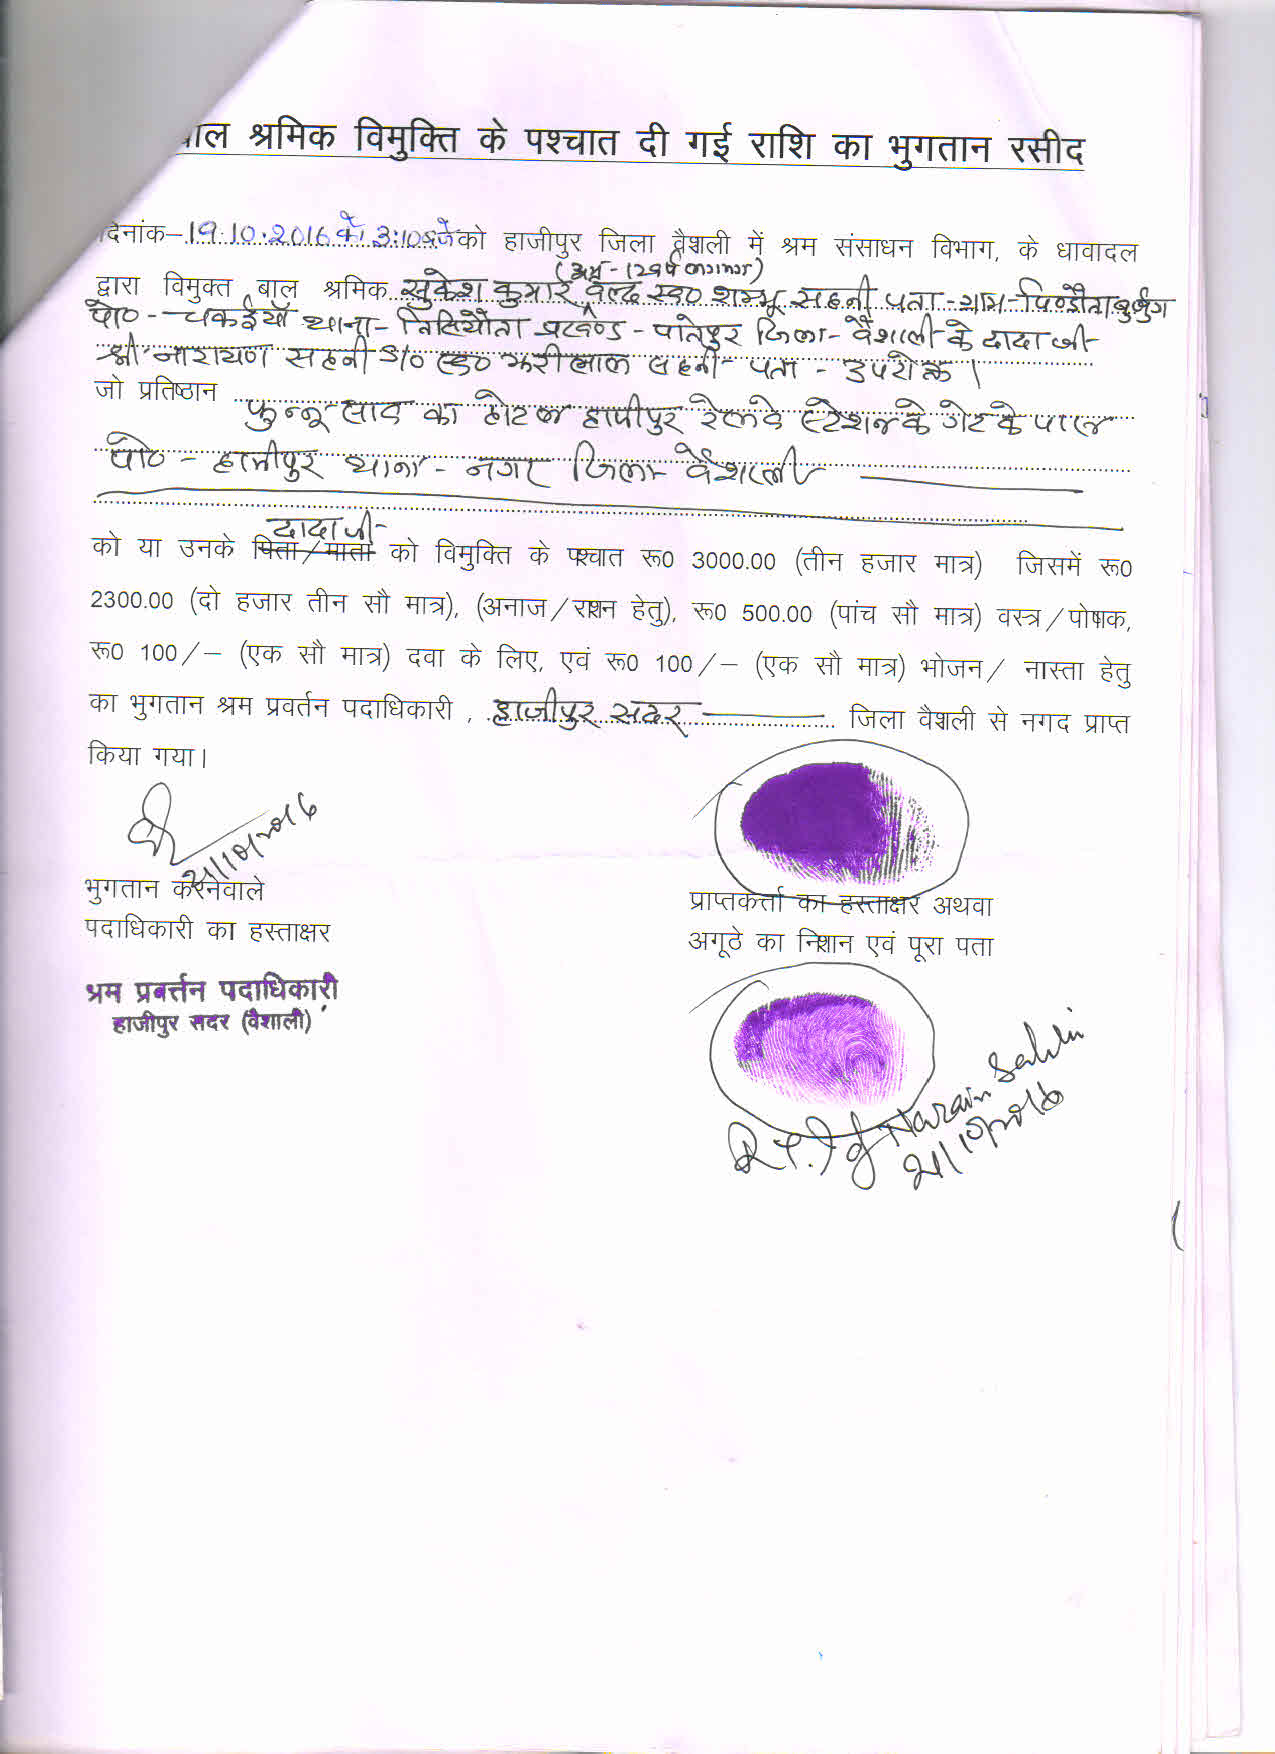 बाल श्रमिक विमुक्ति के पश्चात दी गई राशि का भुगतान रसीद
दिनांक– 19.10.2016 को 3:10 बजे को हाजीपुर जिला वैशली में श्रम संसाधन विभाग, के धावादल
(उम्र - 12 वर्ष लगभग)
द्वारा विमुक्त बाल श्रमिक सुकेश कुमार वल्द स्व० शम्भू सहनी पता - ग्राम - पिण्डौता बुर्जुग
पो० - चकईयाँ थाना - तिसियौता प्रखण्ड - पातेपुर जिला - वैशाली के दादा जी
श्री नारायण सहनी S/o स्व० झरीलाल सहनी पता - उपरोक्त।
जो प्रतिष्ठान फुन्नू साव का होटल हाजीपुर रेलवे स्टेशन के गेट के पास
पो० - हाजीपुर थाना - नगर जिला - वैशाली
दादा जी
को या उनके पिता/माता को विमुक्ति के पश्चात रू0 3000.00 (तीन हजार मात्र) जिसमें रू0
2300.00 (दो हजार तीन सौ मात्र), (अनाज/राशन हेतु), रू0 500.00 (पांच सौ मात्र) वस्त्र/पोषाक,
रू0 100/– (एक सौ मात्र) दवा के लिए, एवं रू0 100/– (एक सौ मात्र) भोजन/ नास्ता हेतु
का भुगतान श्रम प्रवर्तन पदाधिकारी , हाजीपुर सदर जिला वैशली से नगद प्राप्त
किया गया।
21/10/2016
भुगतान करनेवाले
पदाधिकारी का हस्ताक्षर
श्रम प्रवर्त्तन पदाधिकारी
हाजीपुर सदर (वैशाली)
प्राप्तकर्त्ता का हस्ताक्षर अथवा
अगूठे का निशान एवं पूरा पता
R.T.I of Narain Sahni
21/10/2016